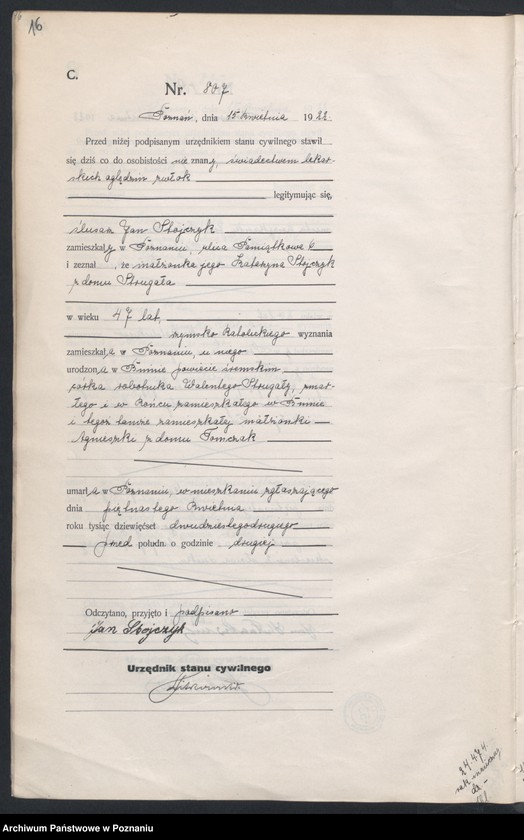 16
C.
Nr. 807
Poznań, dnia 15 kwietnia 1922
Przed niżej podpisanym urzędnikiem stanu cywilnego stawił
się dziś co do osobistości nieznany, świadectwem lekar-
skich oględzin zwłok
legitymując się,
ślusarz Jan Stojczyk
zamieszkały w Poznaniu, ulica Pamiątkowa 6
i zeznał, że małżonka jego Katarzyna Stojczyk
z domu Strugała
w wieku 47 lat,
rzymsko katolickiego wyznania
zamieszkała w Poznaniu, u niego
urodzona w powiecie śremskim
córka robotnika Walentego Strugały, zmar-
łego i w końcu zamieszkałego w
i tegoż tamże zamieszkałej małżonki
Agnieszki z domu Tomczak
umarła w Poznaniu, w mieszkaniu zgłaszającego
dnia piętnastego kwietnia
roku tysiąc dziewięćset dwudziestegodrugiego
przed połudn. o godzinie drugiej
Odczytano, przyjęto i podpisano
Jan Stojczyk
Urzędnik stanu cywilnego
Archiwum Państwowe w Poznaniu